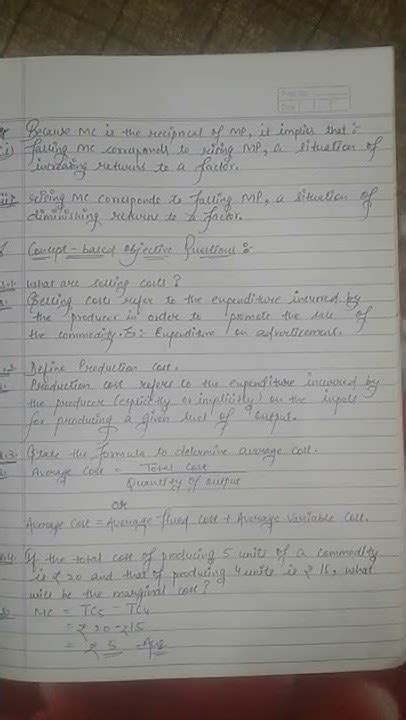 Page No.
Date
Because MC is the reciprocal of MP, it implies that :-
(i) falling MC corresponds to rising MP, a situation of
increasing returns to a factor.
(ii) rising MC corresponds to falling MP, a situation of
diminishing returns to a factor.
Concept-based objective Questions :-
What are selling costs?
Selling costs refer to the expenditure incurred by
the producer in order to promote the sale of
the commodity. Ex: Expenditure on advertisement.
Define Production cost.
Production cost refers to the expenditure incurred by
the producer (explicitly or implicitly) on the inputs
for producing a given level of output.
State the formula to determine average cost.
Average Cost = Total Cost
Quantity of output
or
Average cost = Average fixed cost + Average variable cost.
If the total cost of producing 5 units of a commodity
is ₹ 20 and that of producing 4 units is ₹ 15, what
will be the marginal cost?
MC = TC5 - TC4
= ₹ 20 - ₹ 15
= ₹ 5 Ans